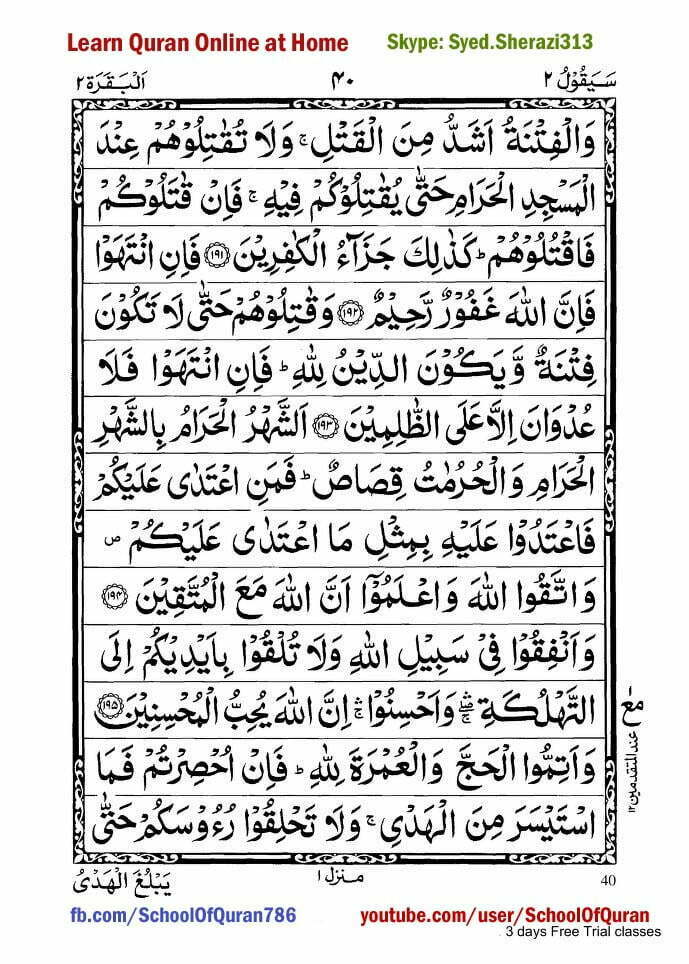 Learn Quran Online at Home Skype: Syed.Sherazi313
سَيَقُوۡلُ ٢ ٤٠ اَلۡبَقَرَة ٢
وَالۡفِتۡنَةُ اَشَدُّ مِنَ الۡقَتۡلِ ۚ وَلَا تُقٰتِلُوۡهُمۡ عِنۡدَ
الۡمَسۡجِدِ الۡحَرَامِ حَتّٰى يُقٰتِلُوۡكُمۡ فِيۡهِ ۚ فَاِنۡ قٰتَلُوۡكُمۡ
فَاقۡتُلُوۡهُمۡ ؕ كَذٰلِكَ جَزَآءُ الۡكٰفِرِيۡنَ ﴿۱۹۱﴾ فَاِنِ انۡتَهَوۡا
فَاِنَّ اللّٰهَ غَفُوۡرٌ رَّحِيۡمٌ ﴿۱۹۲﴾ وَقٰتِلُوۡهُمۡ حَتّٰى لَا تَكُوۡنَ
فِتۡنَةٌ وَّيَكُوۡنَ الدِّيۡنُ لِلّٰهِ ؕ فَاِنِ انۡتَهَوۡا فَلَا
عُدۡوَانَ اِلَّا عَلَى الظّٰلِمِيۡنَ ﴿۱۹۳﴾ اَلشَّهۡرُ الۡحَرَامُ بِالشَّهۡرِ
الۡحَرَامِ وَالۡحُرُمٰتُ قِصَاصٌ ؕ فَمَنِ اعۡتَدٰى عَلَيۡكُمۡ
فَاعۡتَدُوۡا عَلَيۡهِ بِمِثۡلِ مَا اعۡتَدٰى عَلَيۡكُمۡ ص
وَاتَّقُوا اللّٰهَ وَاعۡلَمُوۡۤا اَنَّ اللّٰهَ مَعَ الۡمُتَّقِيۡنَ ﴿۱۹۴﴾
وَاَنۡفِقُوۡا فِىۡ سَبِيۡلِ اللّٰهِ وَلَا تُلۡقُوۡا بِاَيۡدِيۡكُمۡ اِلَى
التَّهۡلُكَةِ ۖۛۚ وَاَحۡسِنُوۡا ۛۚ اِنَّ اللّٰهَ يُحِبُّ الۡمُحۡسِنِيۡنَ ﴿۱۹۵﴾
مع عند المتقدمين ١٢
وَاَتِمُّوا الۡحَجَّ وَالۡعُمۡرَةَ لِلّٰهِ ؕ فَاِنۡ اُحۡصِرۡتُمۡ فَمَا
اسۡتَيۡسَرَ مِنَ الۡهَدۡىِ ۚ وَلَا تَحۡلِقُوۡا رُءُوۡسَكُمۡ حَتّٰى
40 منزل ١ يَبۡلُغَ الۡهَدۡىُ
fb.com/SchoolOfQuran786 youtube.com/user/SchoolOfQuran
3 days Free Trial classes